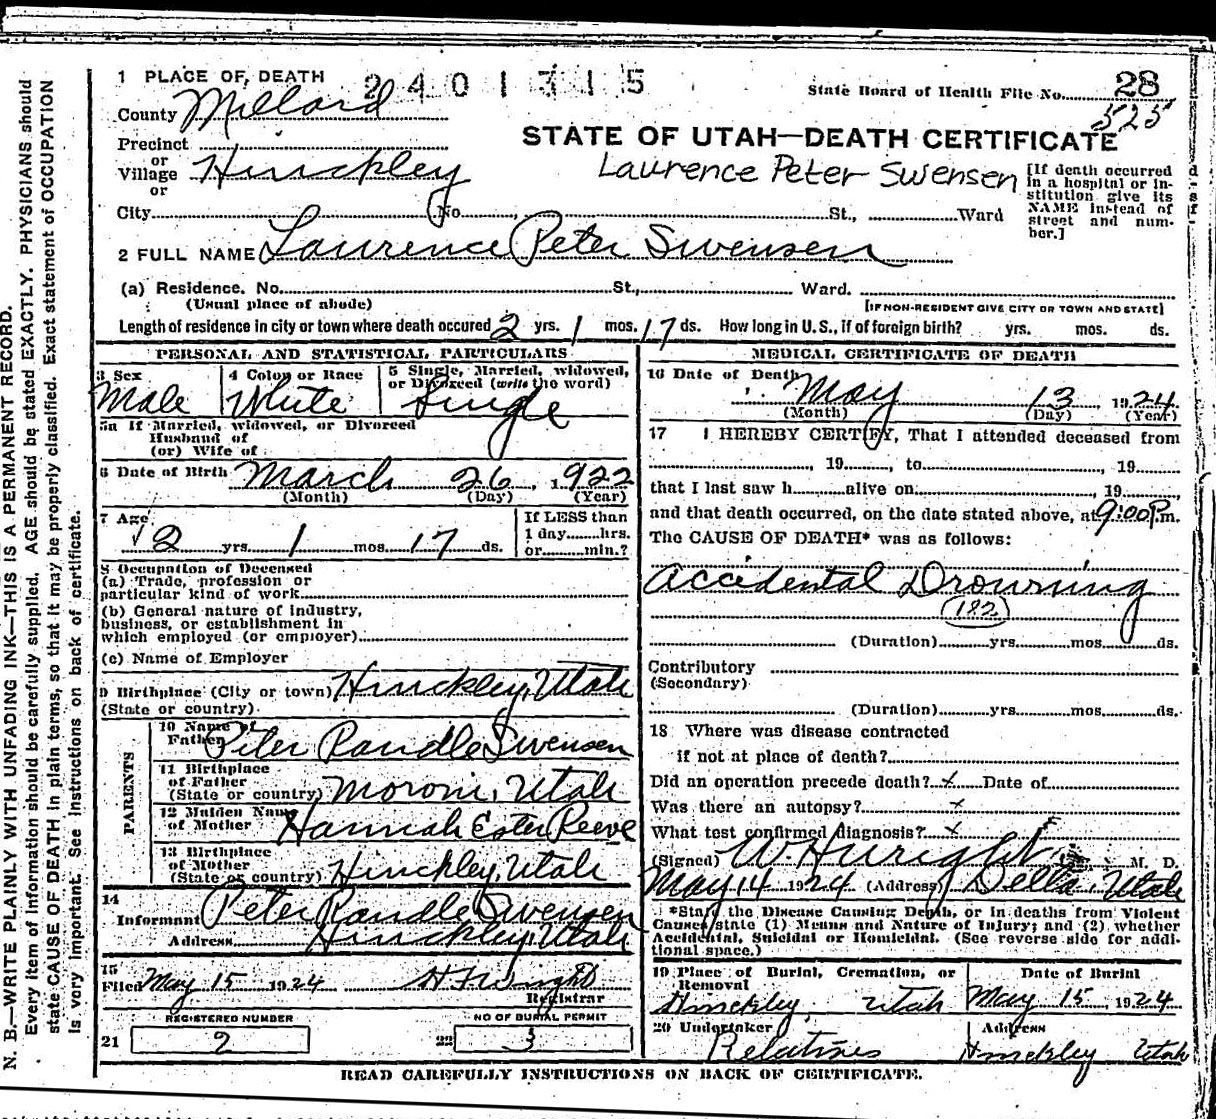 1 PLACE OF DEATH 2401315
State Board of Health File No. 28
525
County Millard
STATE OF UTAH—DEATH CERTIFICATE
Precinct
or
Village Hinckley
or
Laurence Peter Swensen
[If death occurred in a hospital or institution give its NAME instead of street and number.]
City No. St., Ward
2 FULL NAME Laurence Peter Swensen
(a) Residence. No. St., Ward.
(Usual place of abode) [IF NON-RESIDENT GIVE CITY OR TOWN AND STATE]
Length of residence in city or town where death occured 2 yrs. 1 mos. 17 ds. How long in U. S., if of foreign birth? yrs. mos. ds.
PERSONAL AND STATISTICAL PARTICULARS
3 Sex 4 Color or Race 5 Single, Married, widowed,
or Divorced (write the word)
Male White Single
5a If Married, widowed, or Divorced
Husband of
(or) Wife of
6 Date of Birth March 26, 1922
(Month) (Day) (Year)
7 Age If LESS than
2 yrs. 1 mos. 17 ds. 1 day hrs.
or min.?
8 Occupation of Deceased
(a) Trade, profession or
particular kind of work
(b) General nature of industry,
business, or establishment in
which employed (or employer)
(c) Name of Employer
9 Birthplace (City or town) Hinckley, Utah
(State or country)
PARENTS
10 Name of
Father Peter Randle Swensen
11 Birthplace
of Father
(State or country) Moroni, Utah
12 Maiden Name
of Mother Hannah Ester Reeve
13 Birthplace
of Mother
(State or country) Hinckley, Utah
14
Informant Peter Randle Swensen
Address Hinckley, Utah
15
Filed May 15 1924 Wright
Registrar
REGISTERED NUMBER NO OF BURIAL PERMIT
21 2 22 3
MEDICAL CERTIFICATE OF DEATH
16 Date of Death May 13 1924
(Month) (Day) (Year)
17 I HEREBY CERTIFY, That I attended deceased from
, 19 , to , 19
that I last saw h alive on , 19 ,
and that death occurred, on the date stated above, at 9:00 P.m.
The CAUSE OF DEATH* was as follows:
Accidental Drowning
182
(Duration) yrs. mos. ds.
Contributory
(Secondary)
(Duration) yrs. mos. ds.
18 Where was disease contracted
if not at place of death?
Did an operation precede death? x Date of
Was there an autopsy? x
What test confirmed diagnosis? x
(Signed) Wright M. D.
May 14 1924 (Address) Delta Utah
*State the Disease Causing Death, or in deaths from Violent
Causes state (1) Means and Nature of Injury; and (2) whether
Accidental, Suicidal or Homicidal. (See reverse side for additional space.)
19 Place of Burial, Cremation, or Date of Burial
Removal
Hinckley Utah May 15, 1924
20 Undertaker Address
Relatives Hinckley Utah
READ CAREFULLY INSTRUCTIONS ON BACK OF CERTIFICATE.
N. B—WRITE PLAINLY WITH UNFADING INK—THIS IS A PERMANENT RECORD.
Every item of information should be carefully supplied. AGE should be stated EXACTLY. PHYSICIANS should
state CAUSE OF DEATH in plain terms, so that it may be properly classified. Exact statement of OCCUPATION
is very important. See instructions on back of certificate.